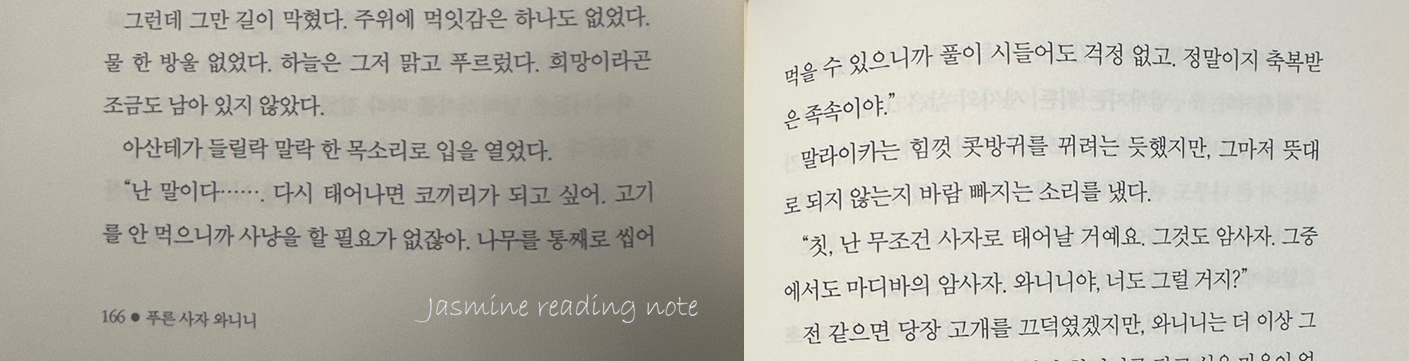 그런데 그만 길이 막혔다. 주위에 먹잇감은 하나도 없었다.
물 한 방울 없었다. 하늘은 그저 맑고 푸르렀다. 희망이라곤
조금도 남아 있지 않았다.
아산테가 들릴락 말락 한 목소리로 입을 열었다.
“난 말이다……. 다시 태어나면 코끼리가 되고 싶어. 고기
를 안 먹으니까 사냥을 할 필요가 없잖아. 나무를 통째로 씹어
166 ● 푸른 사자 와니니
Jasmine reading note
먹을 수 있으니까 풀이 시들어도 걱정 없고. 정말이지 축복받
은 족속이야.”
말라이카는 힘껏 콧방귀를 뀌려는 듯했지만, 그마저 뜻대
로 되지 않는지 바람 빠지는 소리를 냈다.
“칫, 난 무조건 사자로 태어날 거예요. 그것도 암사자. 그중
에서도 마디바의 암사자. 와니니야, 너도 그럴 거지?”
전 같으면 당장 고개를 끄덕였겠지만, 와니니는 더 이상 그